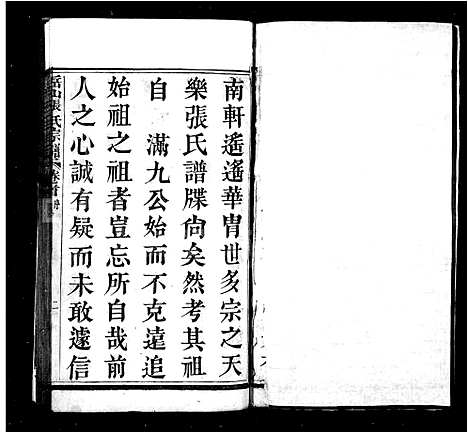 南軒遙遙華胄世多宗之天
樂張氏譜牒尙矣然考其祖
自 滿九公始而不克遠追
始祖之祖者豈忘所自哉前
人之心誠有疑而未敢遽信
岳山張氏宗譜 卷首
二